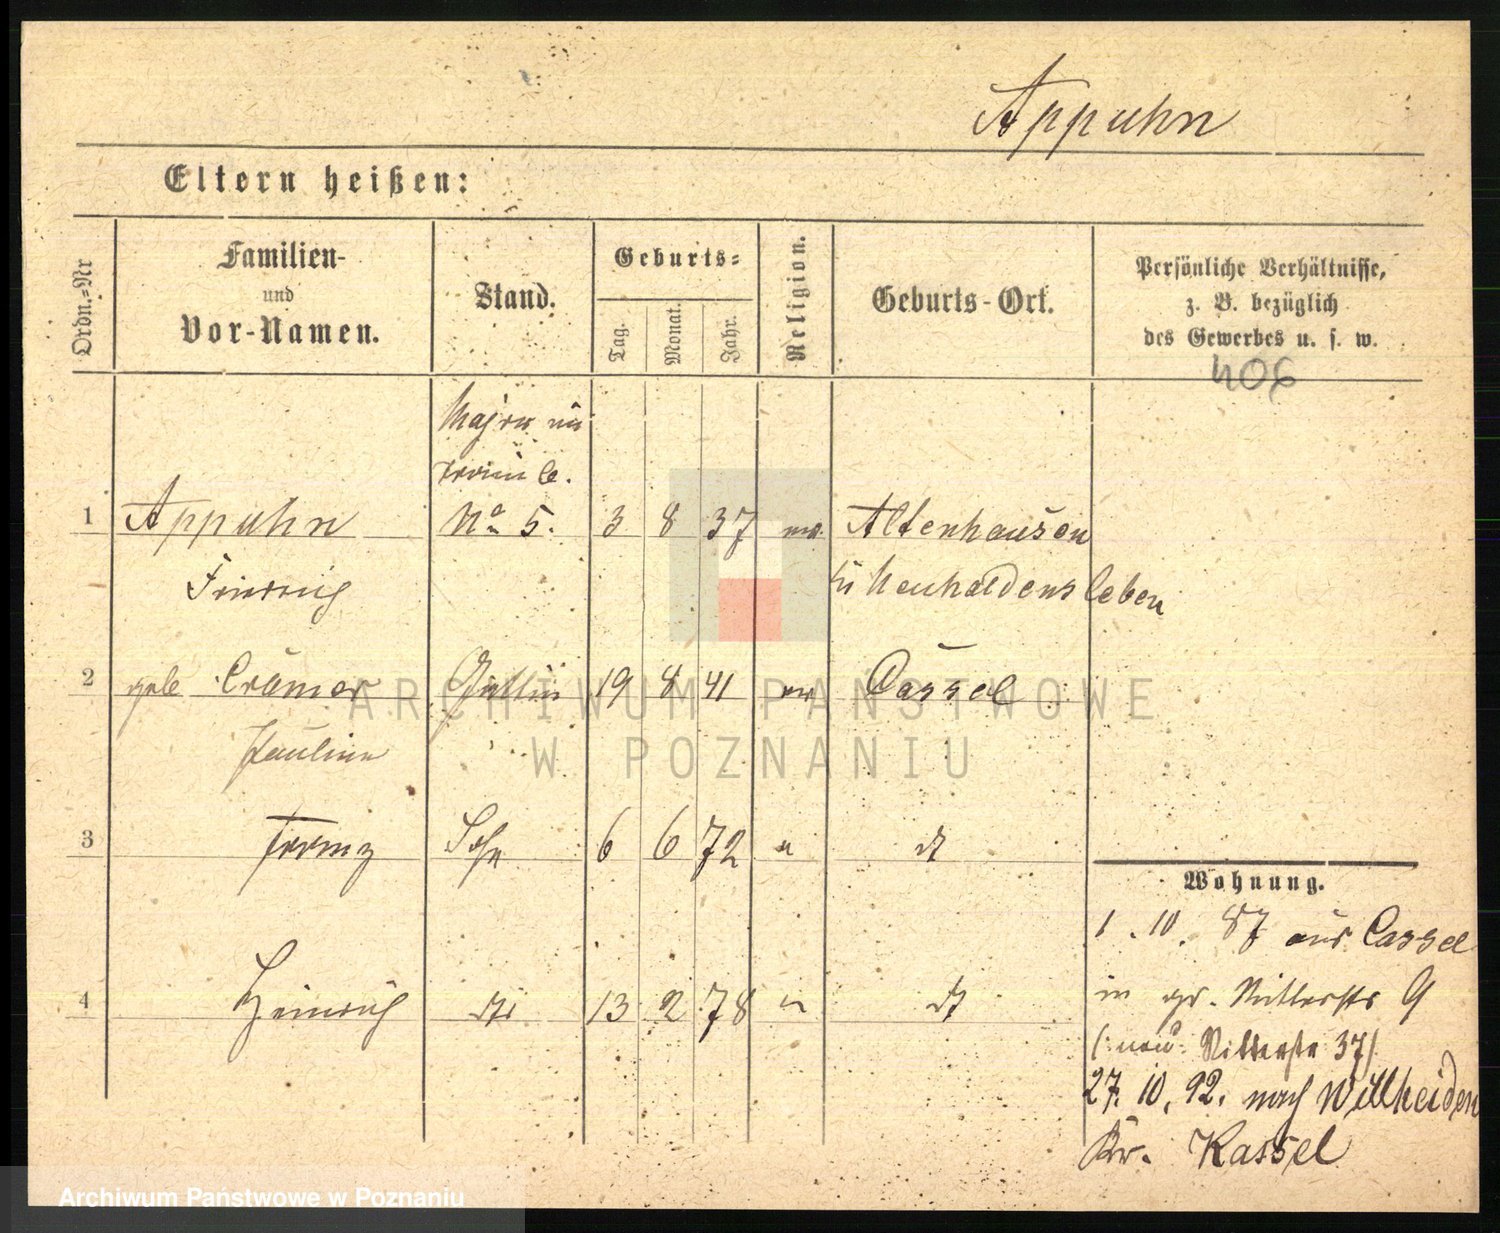 Appuhn
Eltern heißen:
Ordn.-Nr
Familien-
und
Vor-Namen.
Stand.
Geburts-
Tag.
Monat.
Jahr.
Religion.
Geburts-Ort.
Persönliche Verhältnisse,
z. B. bezüglich
des Gewerbes u. s. w.
406
Major im
No 5.
1 Appuhn 3 8 37 ev. Altenhausen
Friedrich Neuhaldensleben
2 geb Crämer Gattin 19 8 41 ev Cassel
Pauline
3 Franz Sohn 6 6 72 " dt
4 Heinrich dto 13 2 78 " dt
Wohnung.
1. 10. 87 aus Cassel
in gr. Ritterstr 9
(: neu: Ritterstr 37/
27. 10. 92. nach Wellheiden
Kr. Kassel
ARCHIWUM PAŃSTWOWE
W POZNANIU
Archiwum Państwowe w Poznaniu